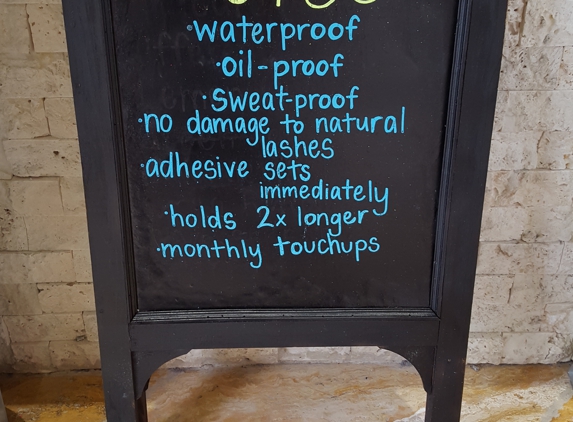 ·waterproof
·oil-proof
·sweat-proof
·no damage to natural
lashes
·adhesive sets
immediately
·holds 2x longer
·monthly touchups